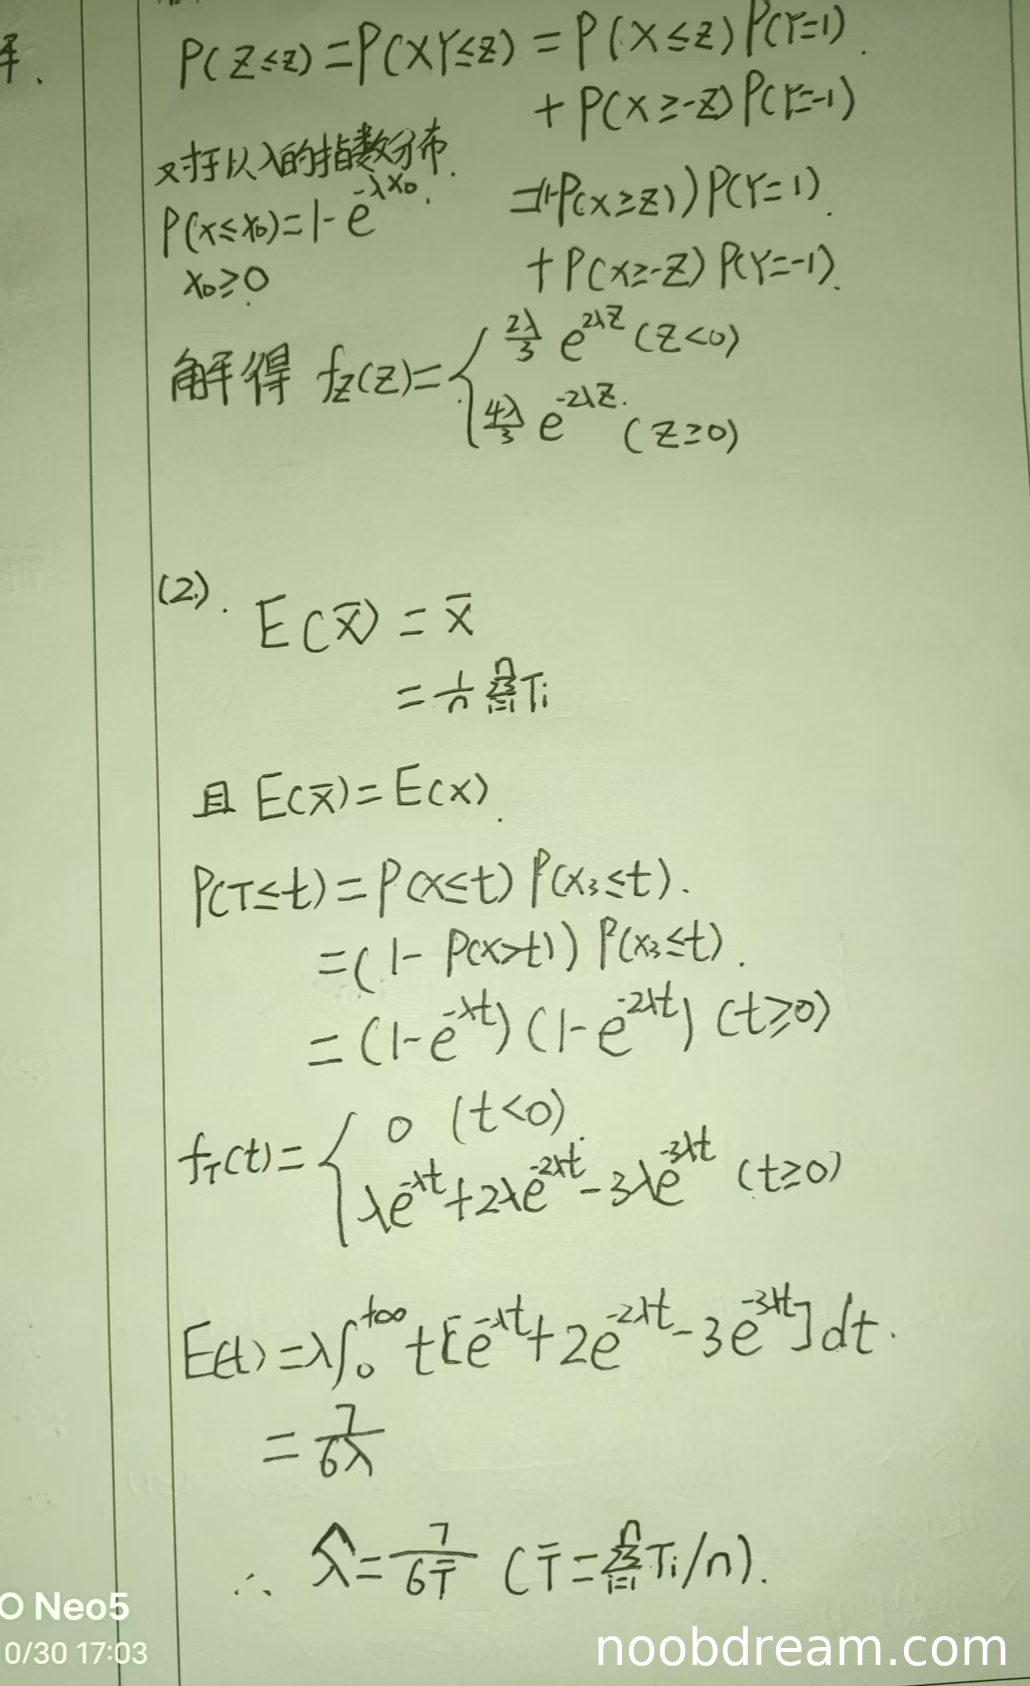 平.
P(Z≤z)=P(XY≤z)=P(X≤z)P(Y=1).
+P(X≥-Z)P(Y=-1)
对于以λ的指数分布.
P(x≤x₀)=1-e^{-λx₀}.
x₀≥0
=(1-P(X≥Z))P(Y=1).
+P(X≥-Z)P(Y=-1).
解得 f_Z(Z)={ 2λ/3 e^{2λZ} (Z<0)
4λ/3 e^{-2λZ}. (Z≥0)
(2).
E(X̄)=X̄
=1/n Σ_{i=1}^{n} Ti
且 E(X̄)=E(X).
P(T≤t)=P(X≤t)P(X₃≤t).
=(1-P(X>t))P(X₃≤t).
=(1-e^{-λt})(1-e^{-2λt}) (t≥0)
f_T(t)={ 0 (t<0).
λe^{-λt}+2λe^{-2λt}-3λe^{-3λt} (t≥0)
E(t)=λ∫₀^{+∞} t[e^{-λt}+2e^{-2λt}-3e^{-3λt}]dt.
=7/6λ
∴ λ̂=7/6T̄ (T̄=Σ_{i=1}^{n} Ti/n).
O Neo5
0/30 17:03
noobdream.com